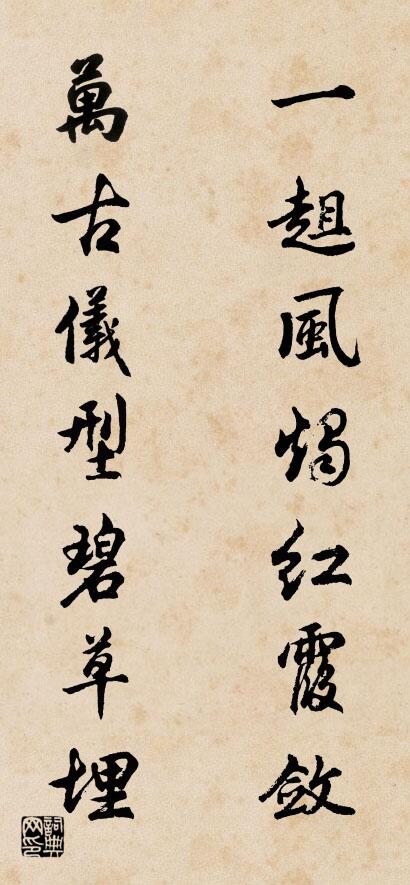 一趄風燭紅霞斂
萬古儀型碧草埋
詞典网印